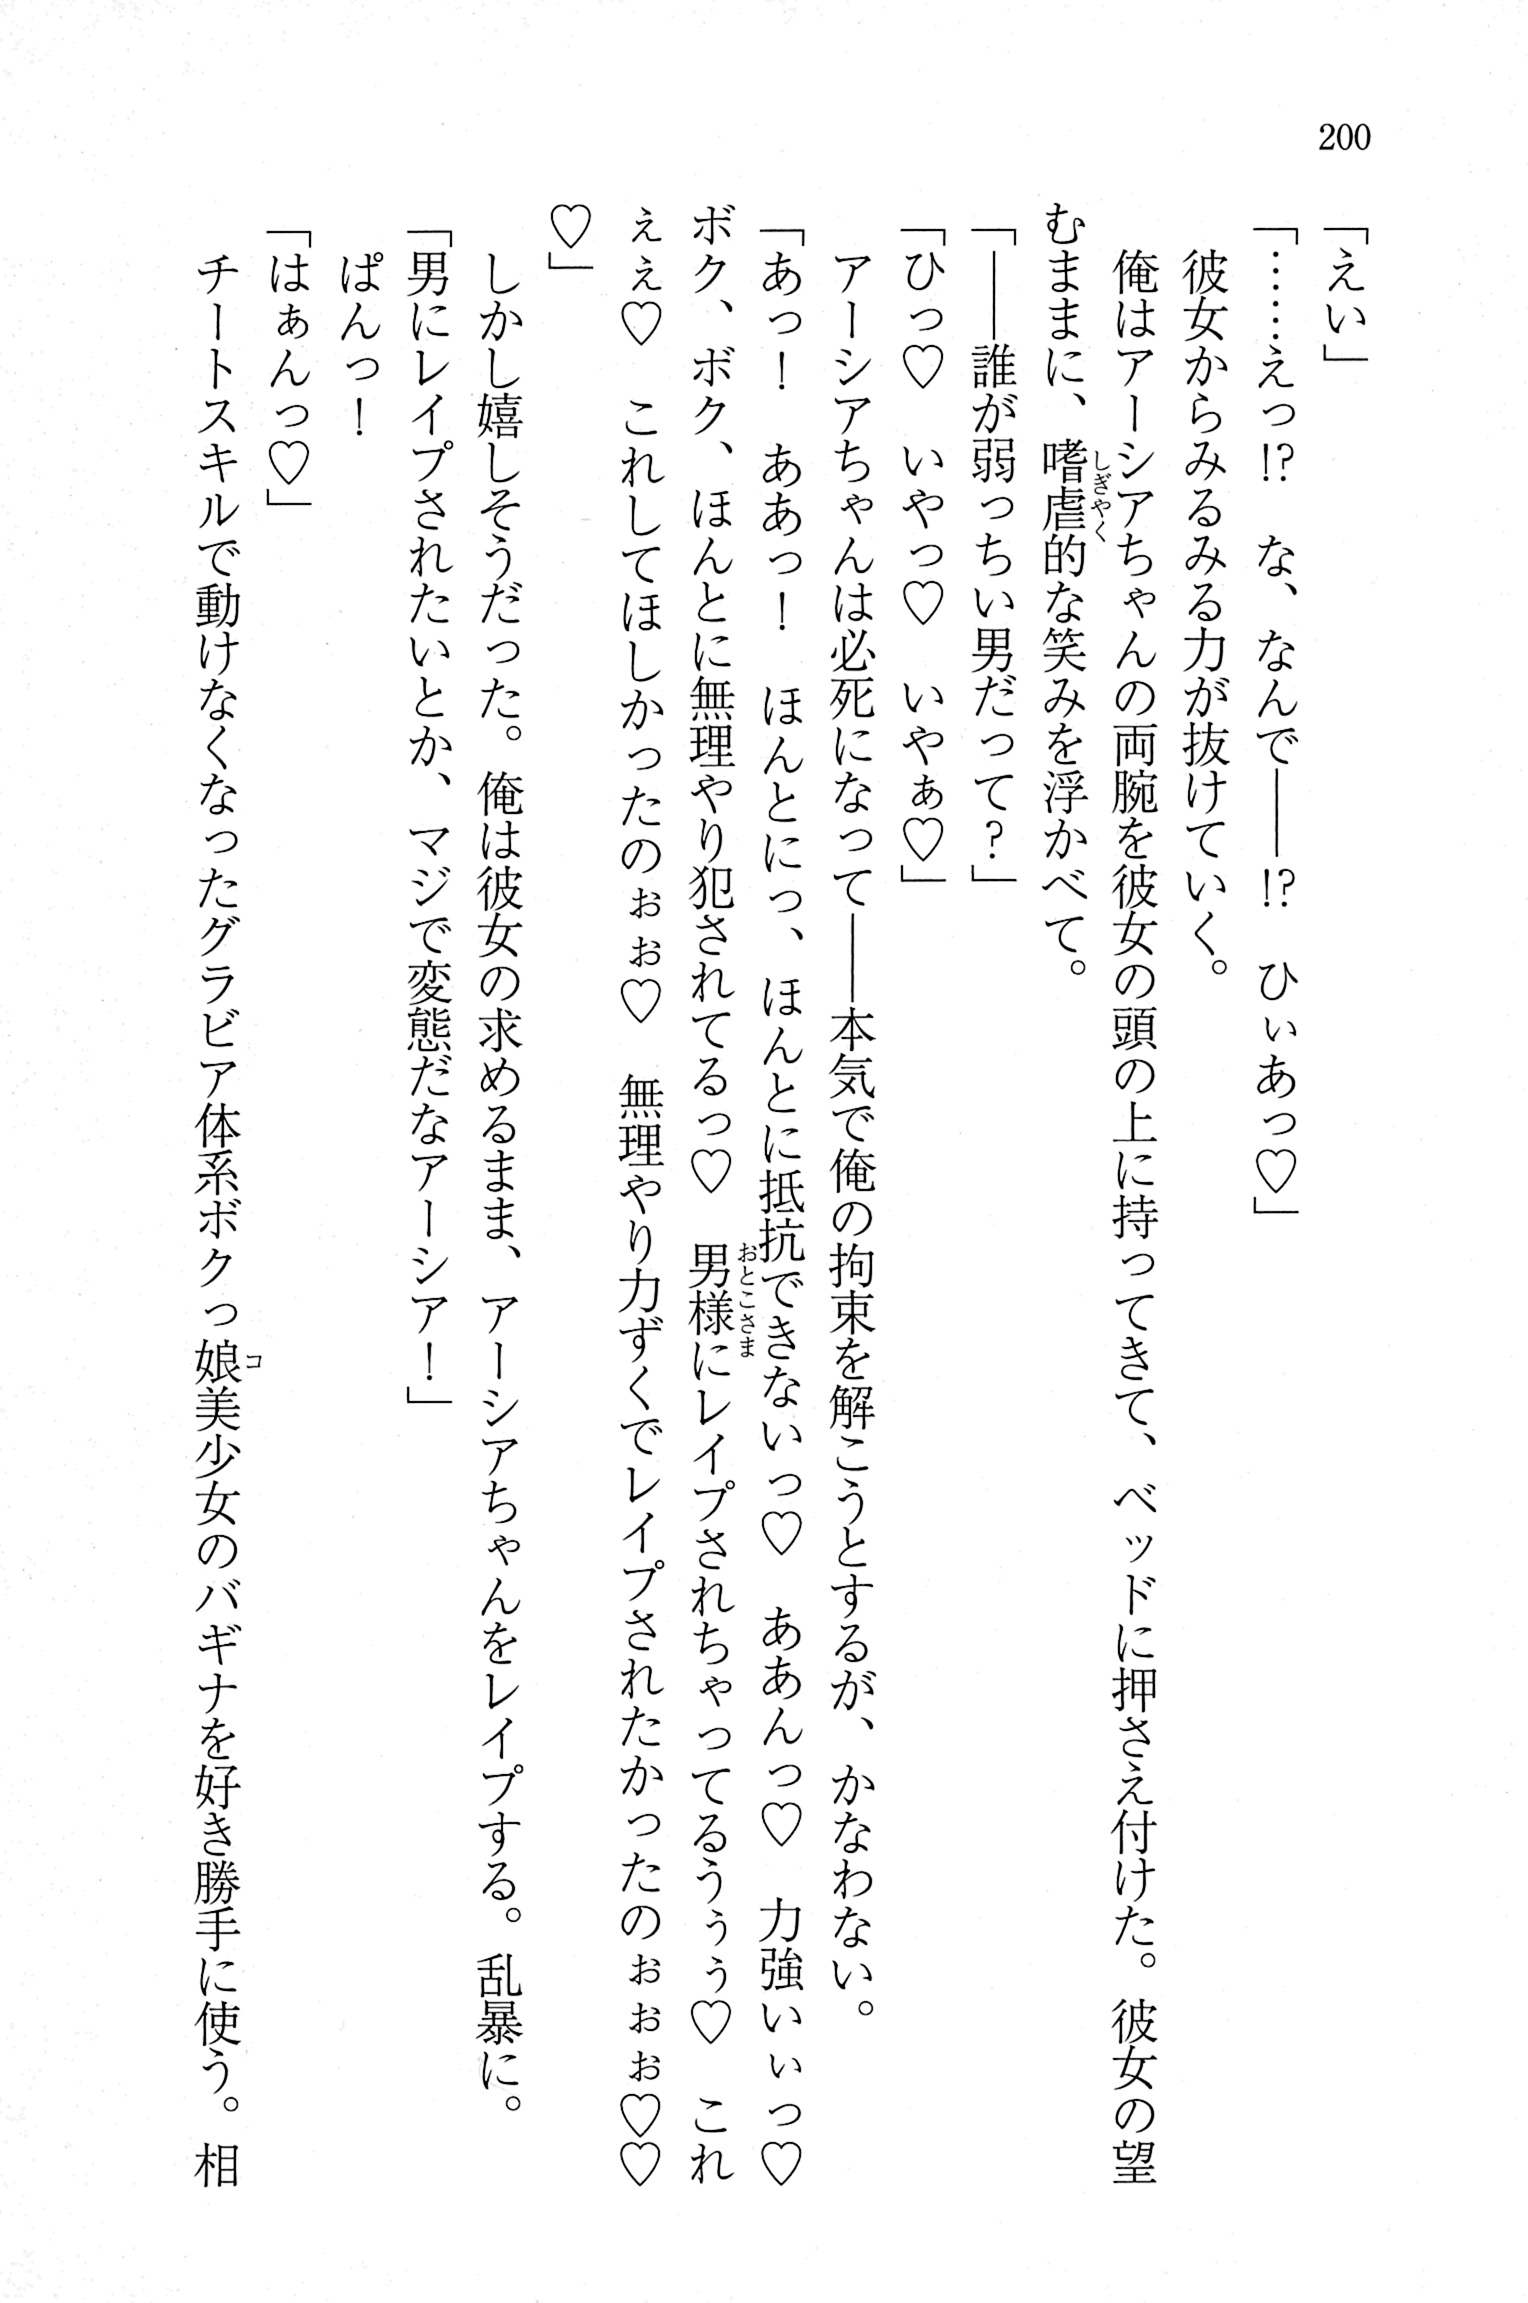 200
「えい」
「……えっ!?　な、なんで――!?　ひぃあっ♡」
彼女からみるみる力が抜けていく。
俺はアーシアちゃんの両腕を彼女の頭の上に持ってきて、ベッドに押さえ付けた。彼女の望
むままに、嗜虐的な笑みを浮かべて。
「――誰が弱っちい男だって?」
「ひっ♡　いやっ♡　いやぁ♡」
アーシアちゃんは必死になって――本気で俺の拘束を解こうとするが、かなわない。
「あっ！　ああっ！　ほんとにっ、ほんとに抵抗できないっ♡　ああんっ♡　力強いぃっ♡
ボク、ボク、ほんとに無理やり犯されてるっ♡　男様にレイプされちゃってるうぅぅ♡　これ
ぇぇ♡　これしてほしかったのぉぉ♡　無理やり力ずくでレイプされたかったのぉぉぉ♡♡
♡」
しかし嬉しそうだった。俺は彼女の求めるまま、アーシアちゃんをレイプする。乱暴に。
「男にレイプされたいとか、マジで変態だなアーシア！」
ぱんっ！
「はぁんっ♡」
チートスキルで動けなくなったグラビア体系ボクっ娘美少女のバギナを好き勝手に使う。相